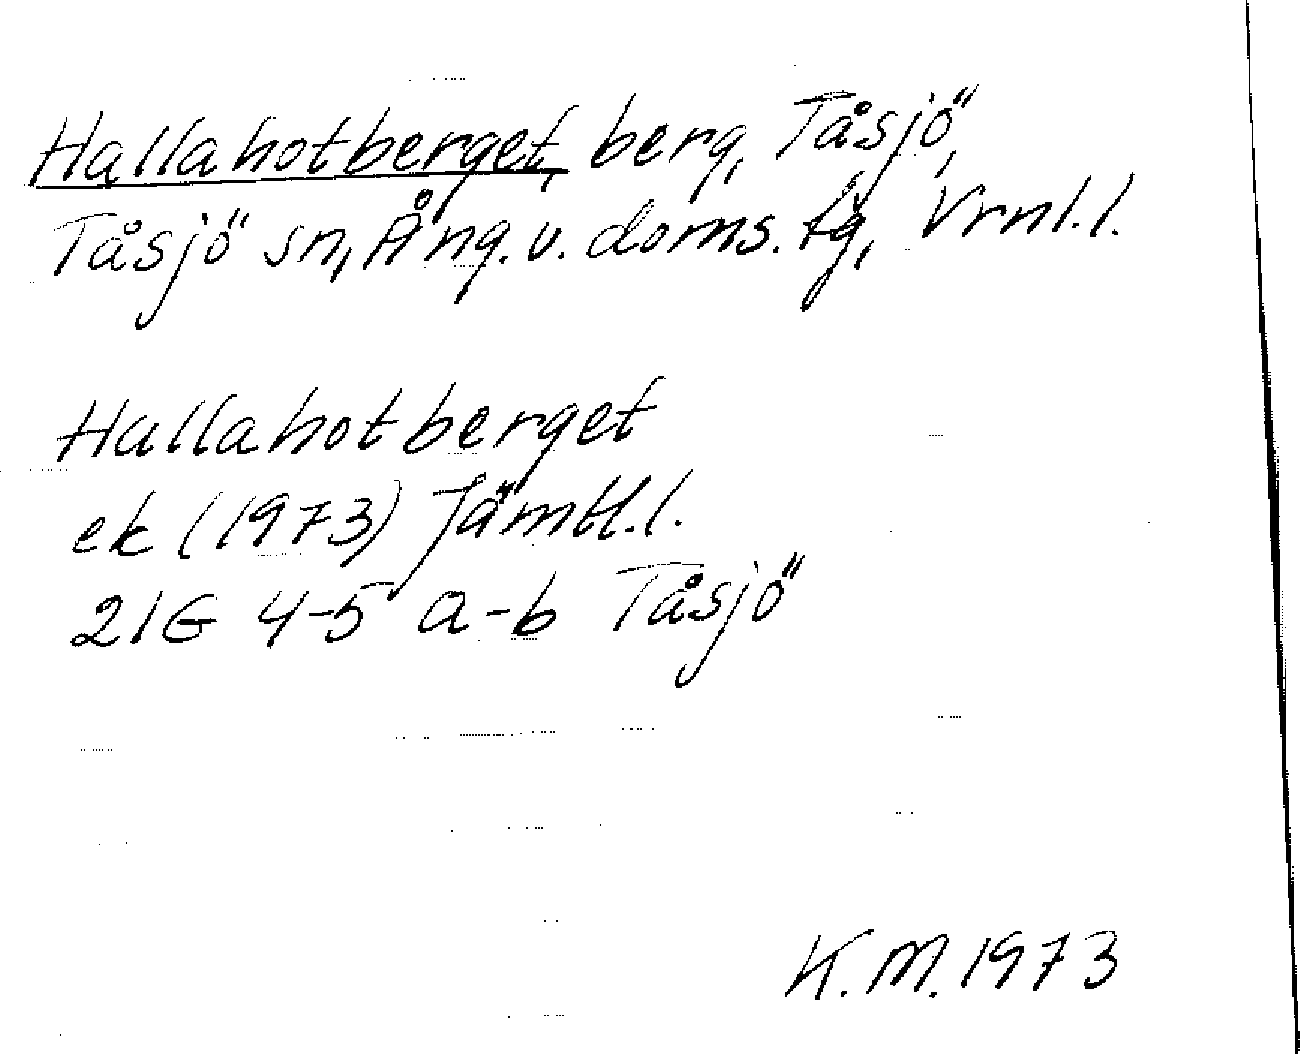 Hallahotberget, berg, Tåsjö,
Tåsjö sn, Ång. v. doms. tg, Vrnl. l.
Hallahotberget
ek (1973) Jämtl. l.
21G 4-5 a-b Tåsjö
K. M. 1973